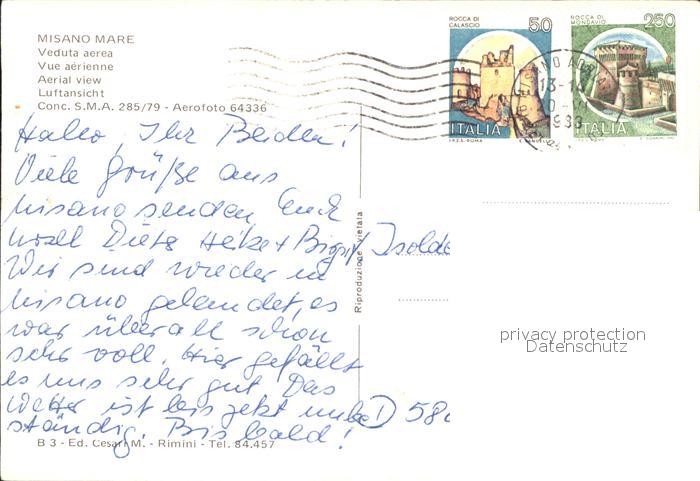 MISANO MARE
Veduta aerea
Vue aérienne
Aerial view
Luftansicht
Conc. S.M.A. 285/79 - Aerofoto 64336
ROCCA DI
CALASCIO
50
ITALIA
I.P.Z.S.-ROMA
ROCCA DI
MONDAVIO
250
ITALIA
13-14
1983
Hallo, Ihr Beiden!
Viele Grüße aus
Misano senden Euch
Dieter Heike + Birgit, Isolde
Wir sind wieder in
Misano gelandet, es
war überall schon
sehr voll. Hier gefällt
es uns sehr gut. Das
Wetter ist bis jetzt unbe
ständig. Bis bald!
D 58
Riproduzione vietata
privacy protection
Datenschutz
B 3 - Ed. Cesari M. - Rimini - Tel. 84.457